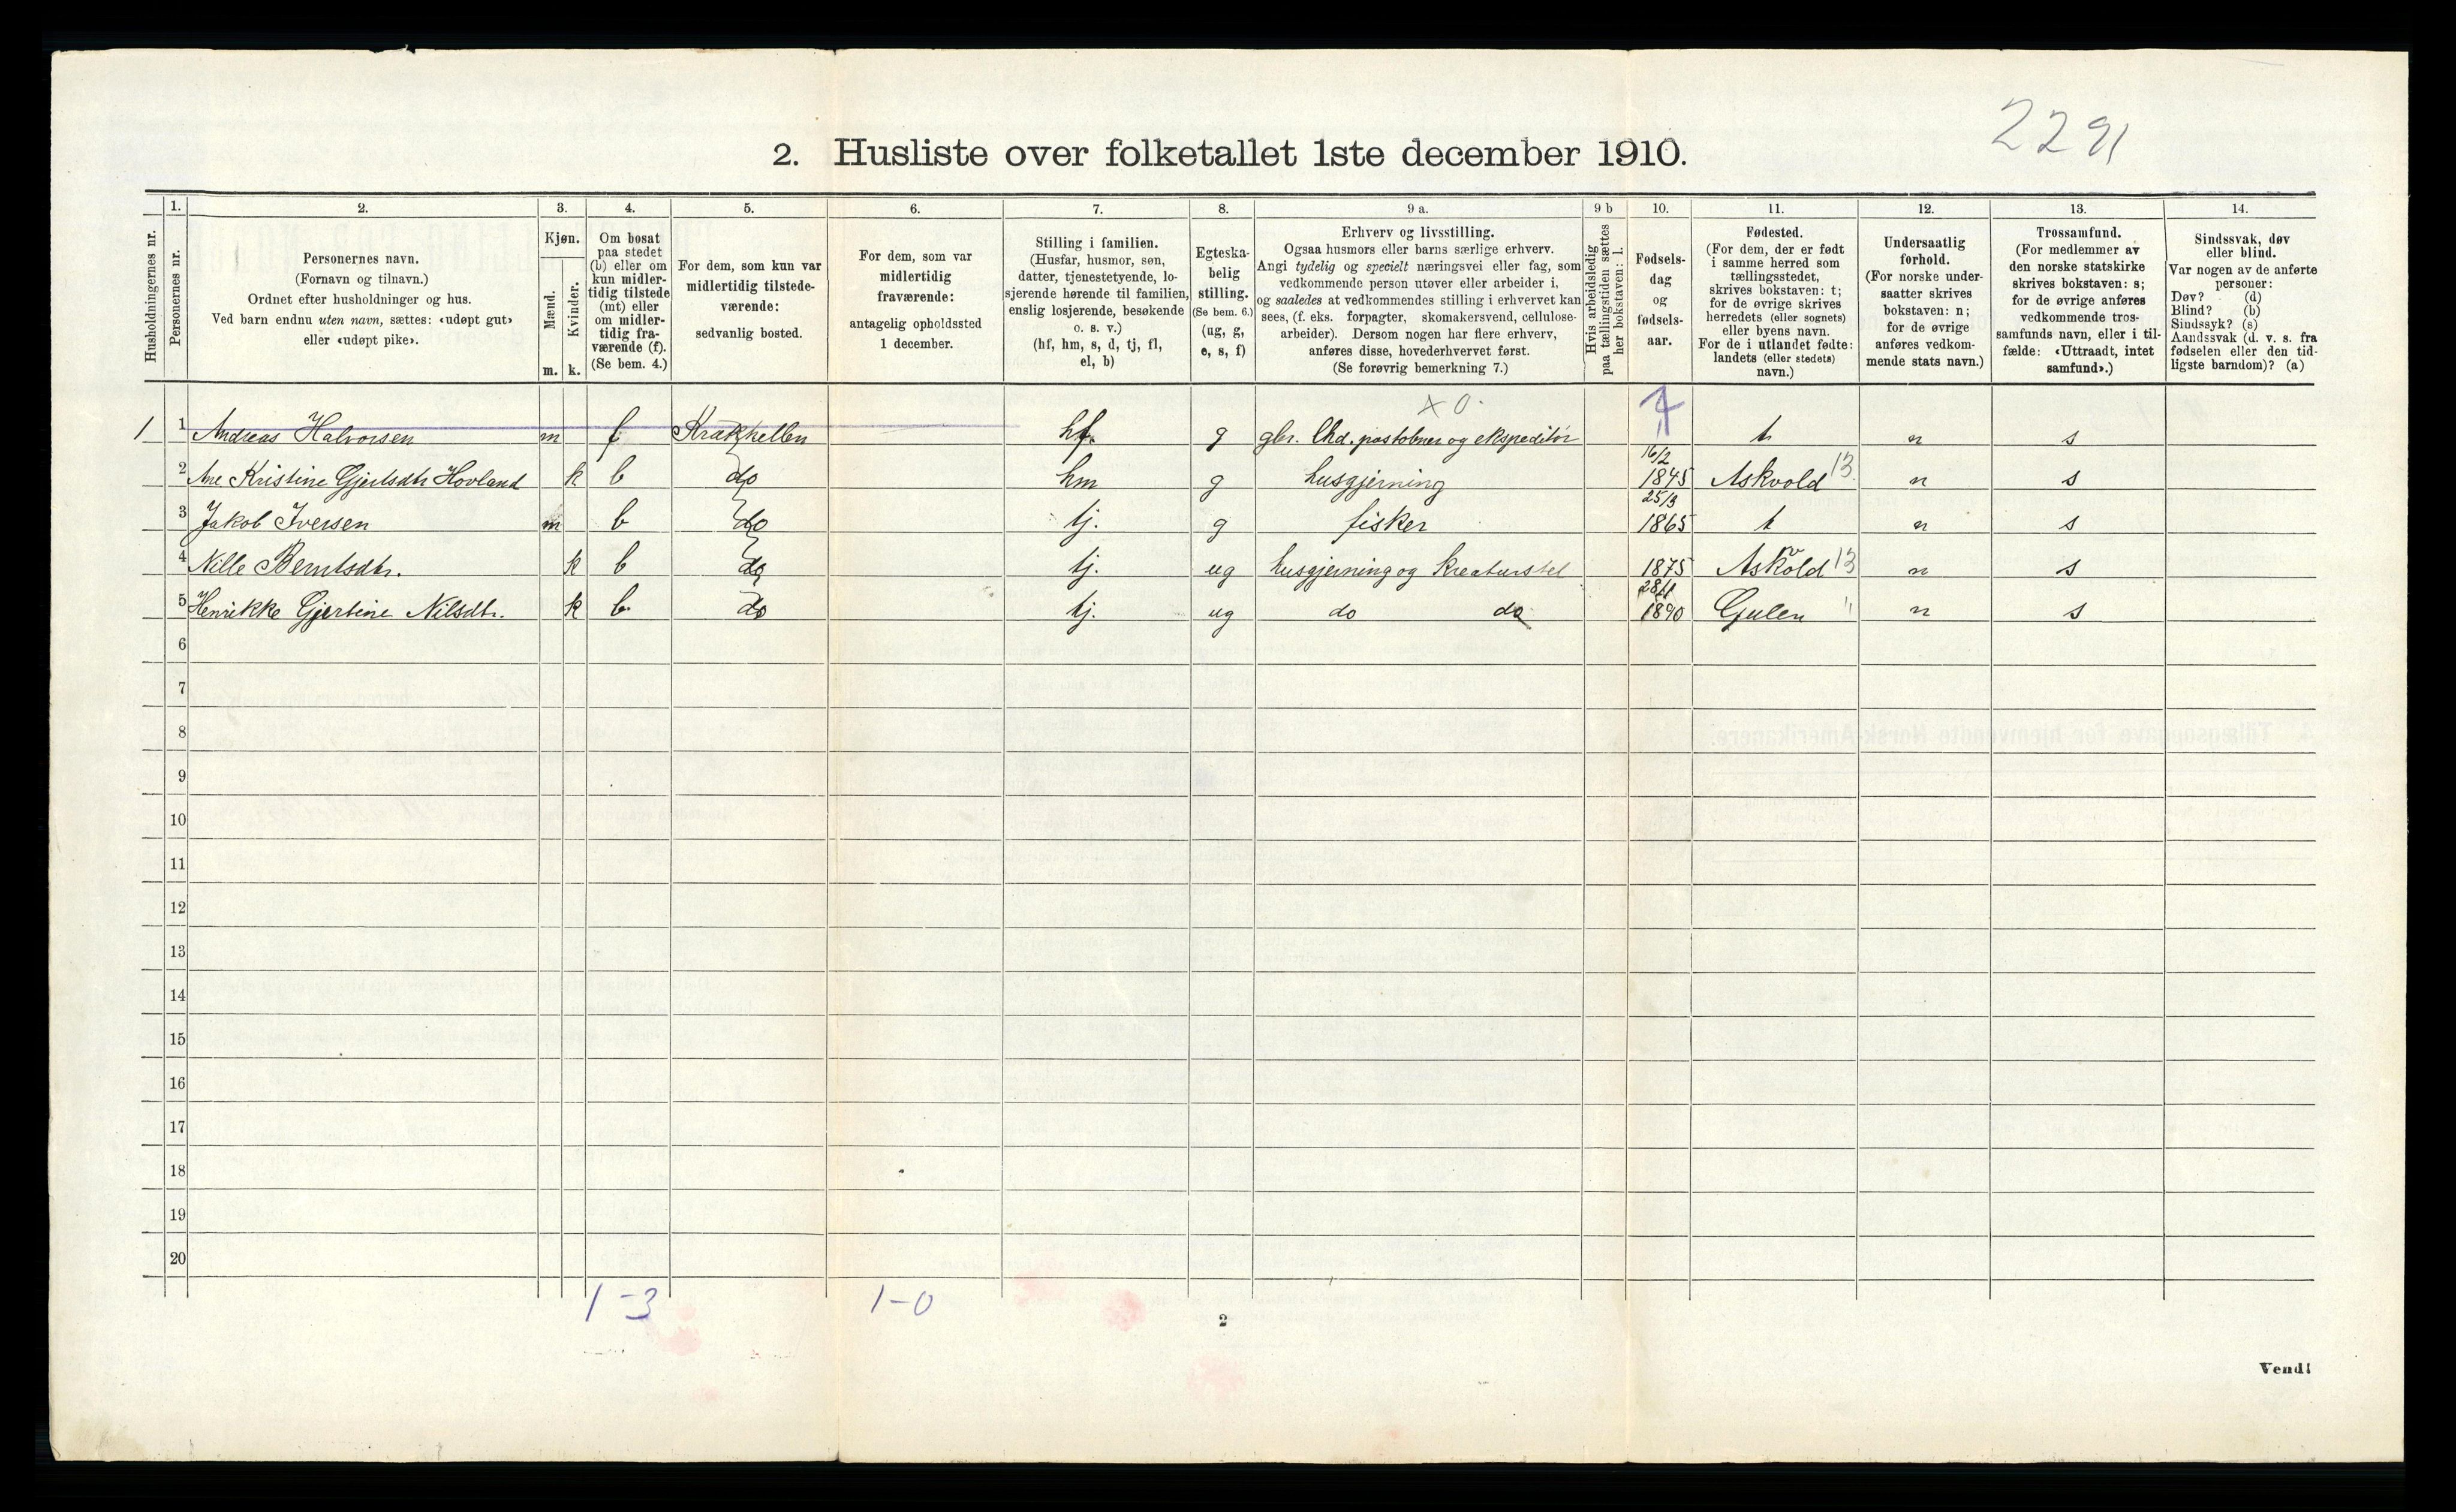 2291
2. Husliste over folketallet 1ste december 1910.
1. 2. 3. 4. 5. 6. 7. 8. 9 a. 9 b 10. 11. 12. 13. 14.
Husholdningernes nr.
Personernes nr.
Personernes navn.
(Fornavn og tilnavn.)
Ordnet efter husholdninger og hus.
Ved barn endnu uten navn, sættes: «udøpt gut»
eller «udøpt pike».
Kjøn.
Mænd.
Kvinder.
m. k.
Om bosat
paa stedet
(b) eller om
kun midler-
tidig tilstede
(mt) eller
om midler-
tidig fra-
værende (f).
(Se bem. 4.)
For dem, som kun var
midlertidig tilstede-
værende:
sedvanlig bosted.
For dem, som var
midlertidig
fraværende:
antagelig opholdssted
1 december.
Stilling i familien.
(Husfar, husmor, søn,
datter, tjenestetyende, lo-
sjerende hørende til familien,
enslig losjerende, besøkende
o. s. v.)
(hf, hm, s, d, tj, fl,
el, b)
Egteska-
belig
stilling.
(Se bem. 6.)
(ug, g,
e, s, f)
Erhverv og livsstilling.
Ogsaa husmors eller barns særlige erhverv.
Angi tydelig og specielt næringsvei eller fag, som
vedkommende person utøver eller arbeider i,
og saaledes at vedkommendes stilling i erhvervet kan
sees, (f. eks. forpagter, skomakersvend, cellulose-
arbeider). Dersom nogen har flere erhverv,
anføres disse, hovederhvervet først.
(Se forøvrig bemerkning 7.)
Hvis arbeidsledig
paa tællingstiden sættes
her bokstaven: l.
Fødsels-
dag
og
fødsels-
aar.
Fødested.
(For dem, der er født
i samme herred som
tællingsstedet,
skrives bokstaven: t;
for de øvrige skrives
herredets (eller sognets)
eller byens navn.
For de i utlandet fødte:
landets (eller stedets)
navn.)
Undersaatlig
forhold.
(For norske under-
saatter skrives
bokstaven: n;
for de øvrige
anføres vedkom-
mende stats navn.)
Trossamfund.
(For medlemmer av
den norske statskirke
skrives bokstaven: s;
for de øvrige anføres
vedkommende tros-
samfunds navn, eller i til-
fælde: «Uttraadt, intet
samfund».)
Sindssvak, døv
eller blind.
Var nogen av de anførte
personer:
Døv? (d)
Blind? (b)
Sindssyk? (s)
Aandssvak (d. v. s. fra
fødselen eller den tid-
ligste barndom)? (a)
x 0
1 1 Andreas Halvorsen m f Krakhellen hf. g gbr. lhd. postobner og ekspeditør t n s
2 Ane Kristine Gjertsdtr Hovland k b do hm g husgjerning 16/2 1845 Askvold 13 n s
3 Jakob Iversen m b do tj. g fisker 25/3 1865 t n s
4 Nille Berntsdtr. k b do tj. ug husgjerning og kreaturstel 1875 Askvold 13 n s
5 Henrikke Gjertine Nilsdtr. k b. do tj. ug do do 28/1 1890 Gulen " n s
6
7
8
9
10
11
12
13
14
15
16
17
18
19
20
1-3 1-0
2
Vend!